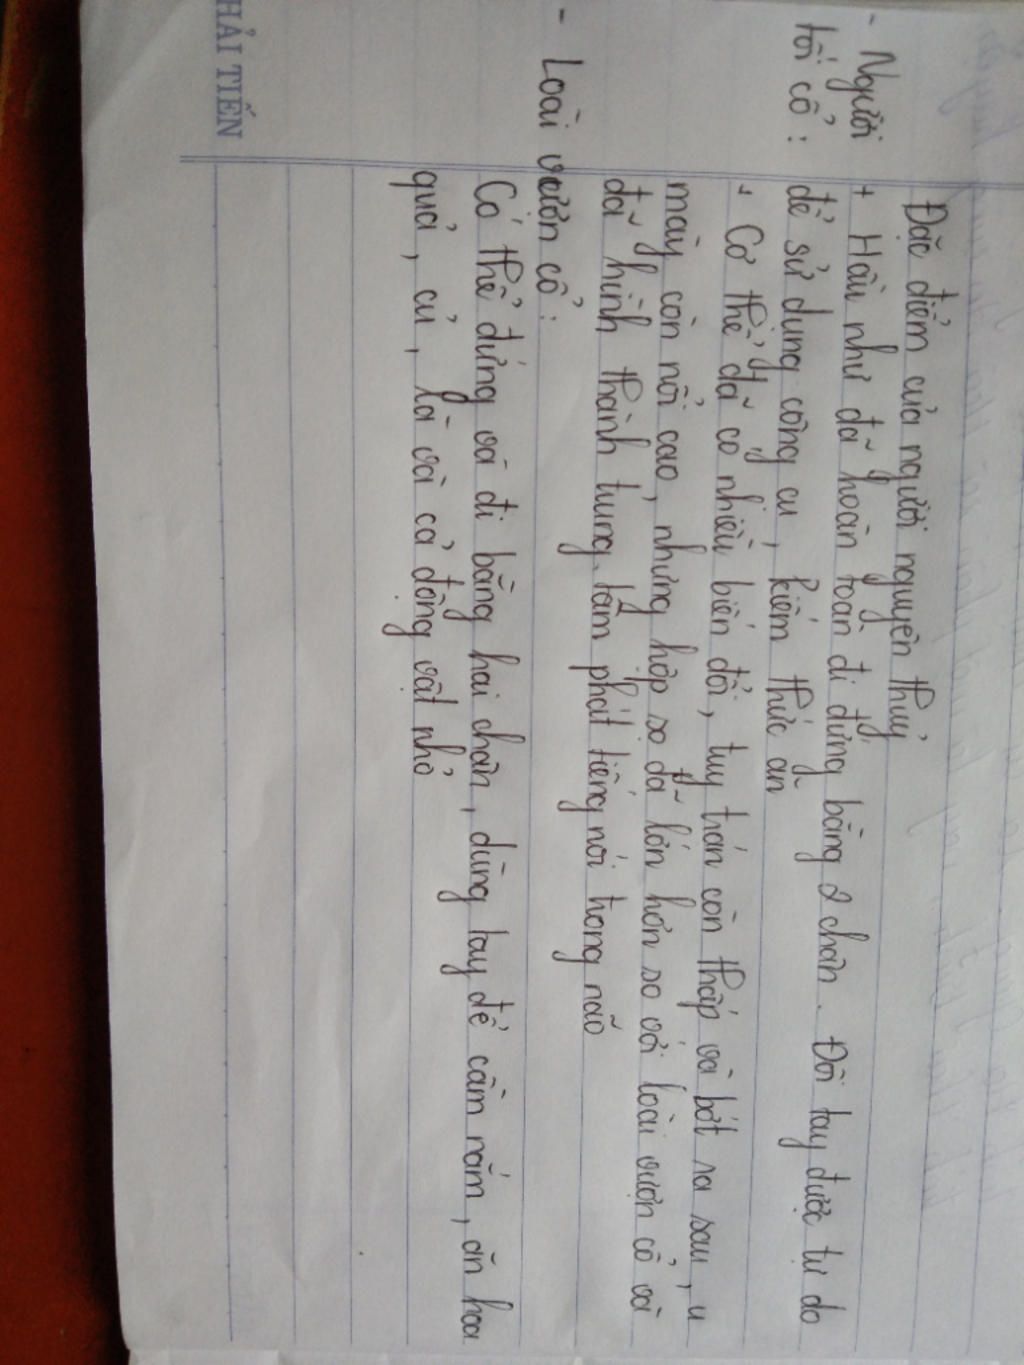 Đặc điểm của người nguyên thủy
- Người tối cổ:
+ Hầu như đã hoàn toàn đi đứng bằng 2 chân. Đôi tay được tự do
để sử dụng công cụ, kiếm thức ăn
+ Cơ thể đã có nhiều biến đổi, tuy trán còn thấp và bớt ra sau, u
mày còn nổi cao, nhưng hộp sọ đã lớn hơn so với loài vượn cổ và
đã hình thành trung tâm phát tiếng nói trong não
- Loài vượn cổ:
Có thể đứng và đi bằng hai chân, dùng tay để cầm nắm, ăn hoa
quả, củ, lá và cả động vật nhỏ
HẢI TIẾN